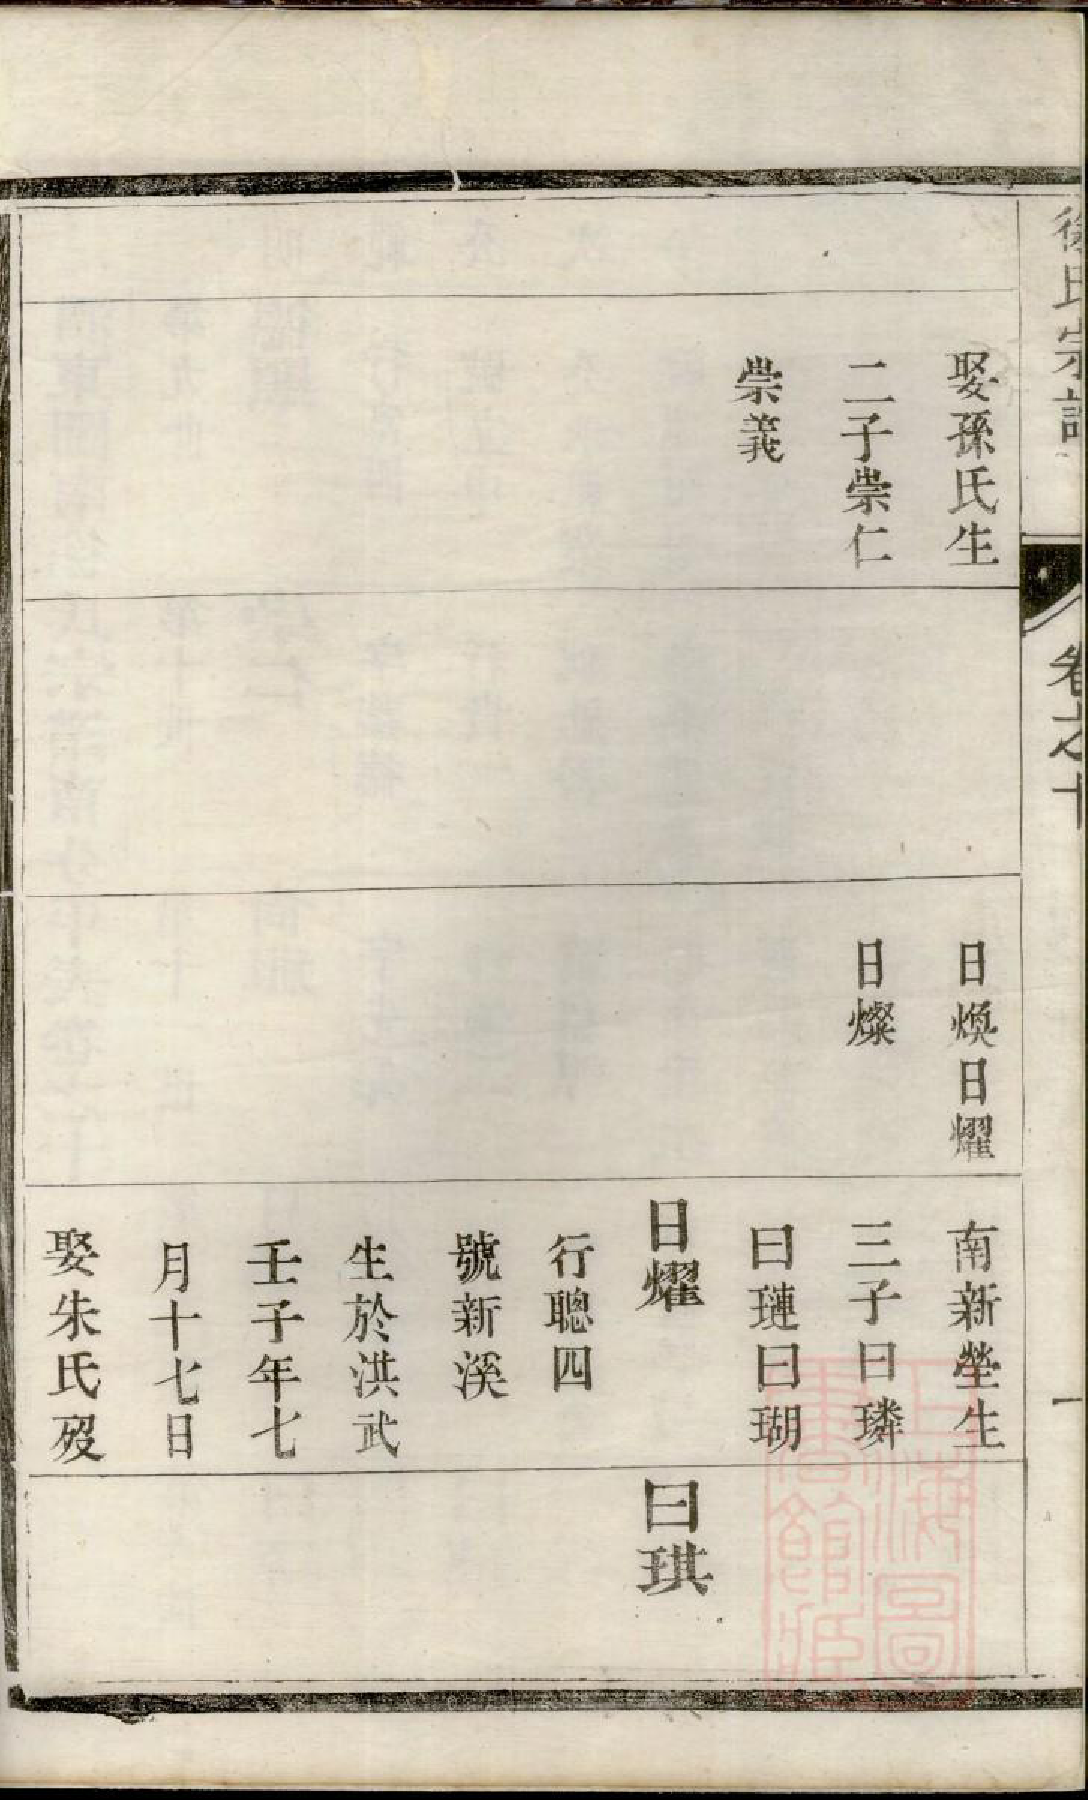 徐氏宗譜
卷之十
一
娶孫氏生
二子崇仁
崇義
日煥日耀
日燦
南新塋生
三子曰璘
曰璉曰瑚
日耀
行聰四
號新溪
生於洪武
壬子年七
月十七日
娶朱氏歿
曰琪
上海圖
書館藏